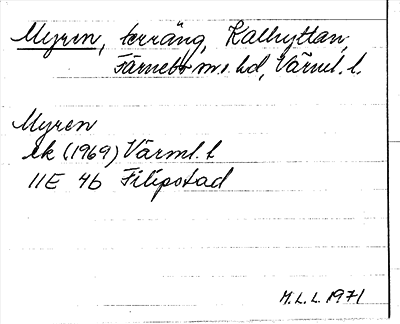 Myren, terräng, Kalhyttan,
Färnebo m:s hd, Värml. l.
Myren
ek (1969) Värml. l
11E 4b Filipstad
M.L.L. 1971